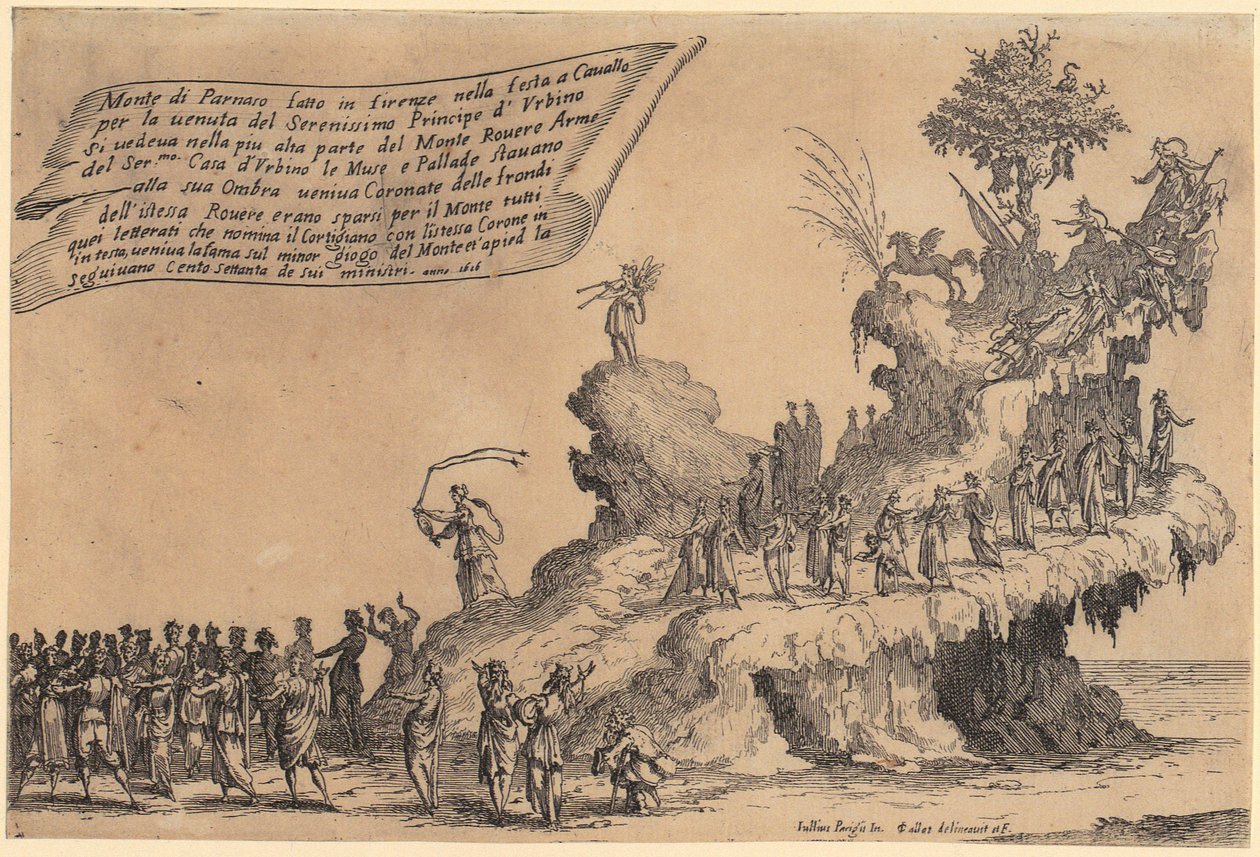 Monte di Parnaso fatto in firenze nella festa a Cauallo
per la uenuta del Serenissimo Principe d' Vrbino
Si uedeua nella piu alta parte del Monte Rouere Arme
del Ser.mo. Casa d'Vrbino le Muse e Pallade stauano
alla sua Ombra ueniua Coronate delle frondi
dell'istessa Rouere erano sparsi per il Monte tutti
quei letterati che nomina il Cortigiano con l'istessa Corone in
in testa, ueniua la fama sul minor giogo del Monte et apied la
seguiuano Cento settanta de sui ministri. anno 1616
Iullius Parigii In. Callot delineauit et F.